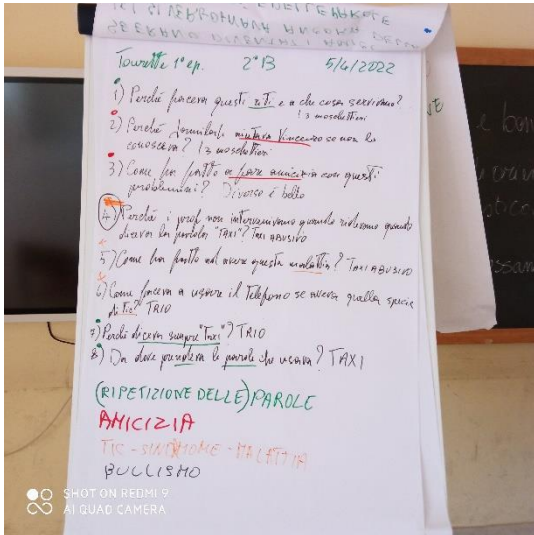 DELLE PAROLE
Tourette 1° ep. 2°B 5/4/2022
1) Perché faceva questi riti e a che cosa servivano?
I 3 moschettieri
2) Perché aiutava Vincenzo se non lo
conosceva? I 3 moschettieri
3) Come ha fatto a fare amicizia con questi
problemini? Diverso è bello
4) Perché i prof non intervenivano quando ridevano quando
diceva la parola "TAXI"? TAXI ABUSIVO
5) Come ha fatto ad avere questa malattia? TAXI ABUSIVO
6) Come faceva a usare il telefono se aveva quella specie
di tic? TRIO
7) Perché diceva sempre "Taxi"? TRIO
8) Da dove prendeva le parole che usava? TAXI
(RIPETIZIONE DELLE) PAROLE
AMICIZIA
TIC - SINDROME - MALATTIA
BULLISMO
SHOT ON REDMI 9
AI QUAD CAMERA